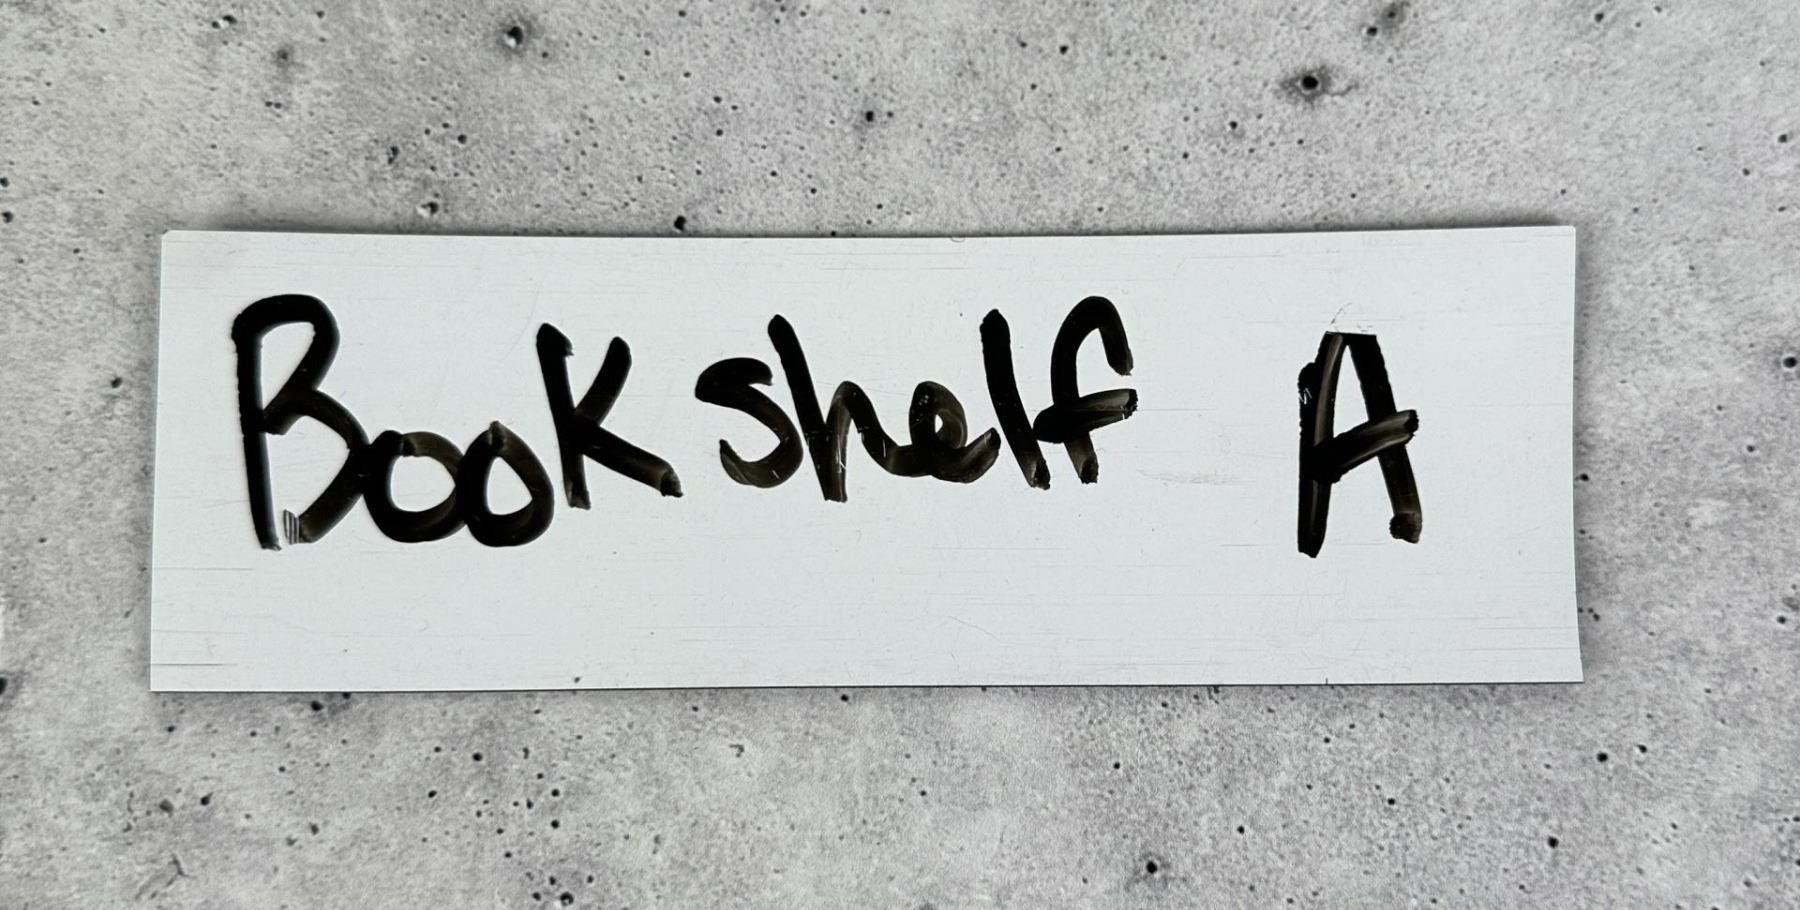 Bookshelf A